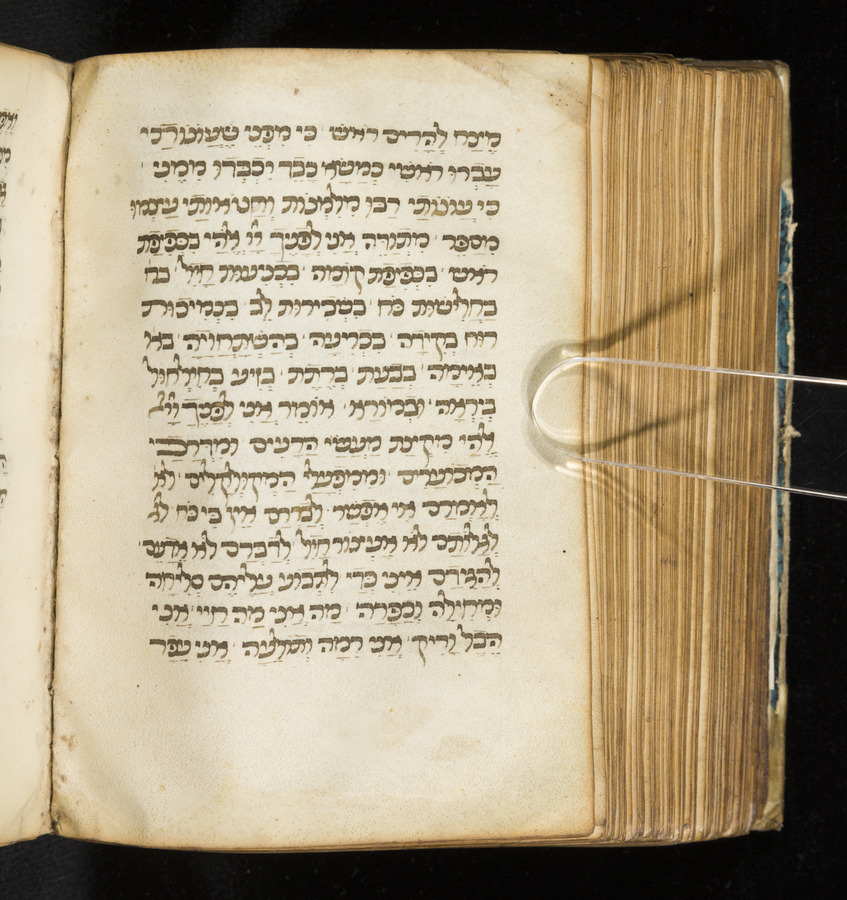 מִינַּח לְהָרִים רֹאשׁ כי מִפְּנֵי שֶׁעֲוֹנוֹתַי כי
עָבְרוּ רֹאשִׁי כְמַשָּׂא כבד יִכְבְּדוּ מִמֶּנִי
כי עֲוֹנוֹתַי רַבּוּ מִלִּמְנוֹת וְחַטֹּאוֹתַי עָצְמוּ
מִסַּפֵּר מִתְוַדֶּה אֲנִי לְפָנֶיךָ יי אֱלֹהַי בִּכְפִיפַת
רֹאשׁ בִּכְפִיפַת קוֹמָה בִּכְנִיעוּת חַיִל
בַּחֲלִישׁוּת כֹּחַ בִּשְׁבִירוּת לֵב בִּנְמִיכוּת
רוּחַ בְּקִידָה בִּכְרִיעָה בְּהִשְׁתַּחֲוָיָה
בְּאֵימָה בְּרֶתֶת בְּזִיעַ בְּחִילְחוּל
בְּיִרְאָה וּבְמוֹרָא אוֹמֵר אֲנִי לְפָנֶיךָ
אֱלֹהַי מִקְצָת מַעֲשַׂי הָרָעִים וּמִדְּרָכַי
הַמְכוֹעָרִים וּמִמִּפְעָלַי הַמְקוּלְקָלִים לֹא
לְאוֹמְרָם אִי אֶפְשָׁר לְסַדְּרָם אֵין בִּי כֹּחַ
לְגַלּוֹתָם לֹא אֶעֱצוֹר חַיִל לְדַבְּרָם לֹא אֵדָעֵם
לְהַגִּידָם אֵינִי כְּדַי לִתְבּוֹעַ עֲלֵיהֶם סְלִיחָה
וּמְחִילָה וְכַפָּרָה מָה אֲנִי מֶה חַיַּי אֲנִי
הֶבֶל וָרִיק אֲנִי רִמָּה וְתוֹלֵעָה אֲנִי עָפָר